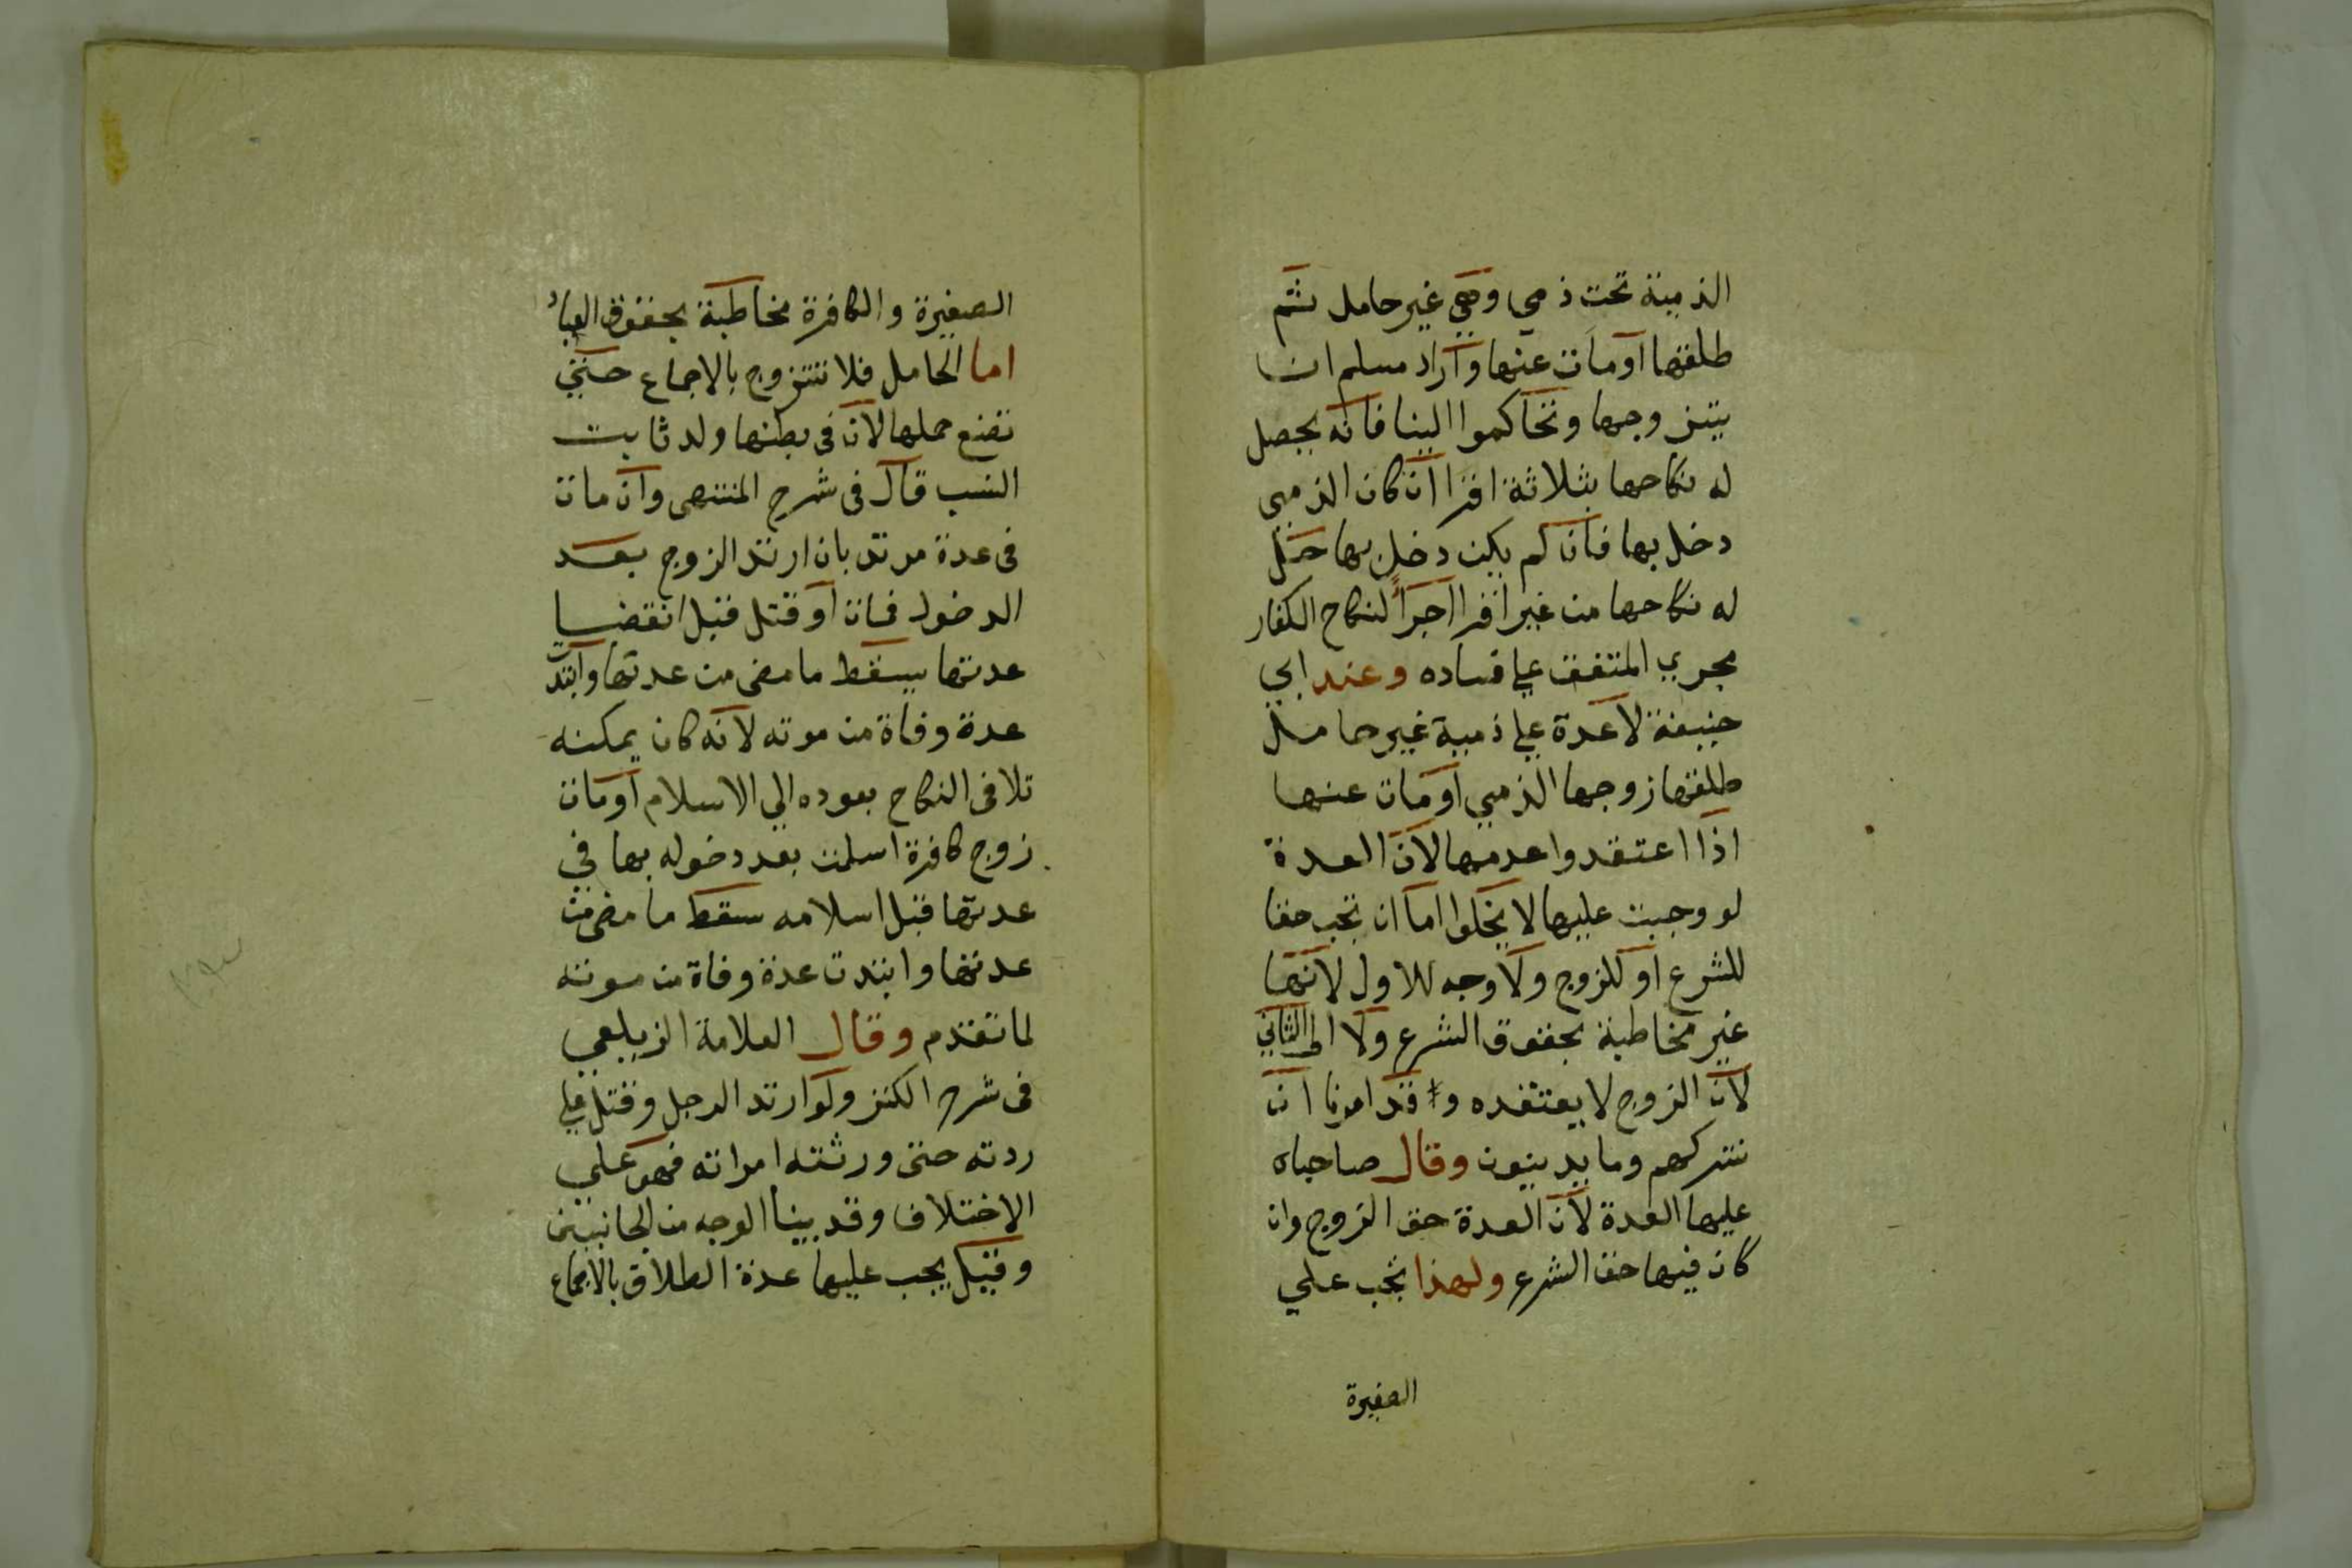 الذمية تحت ذمي وهي غير حامل ثم
طلقها او مات عنها واراد مسلم ان
يتزوجها وتحاكموا الينا فانه يحصل
له نكاحها بثلاثة اقرا ان كان الذمي
دخل بها فان لم يكن دخل بها حل
له نكاحها من غير اقرا اجراً لنكاح الكفار
مجري المتفق علي فساده وعند ابي
حنيفة لا عدة علي ذمية غير حامل
طلقها زوجها الذمي او مات عنها
اذا اعتقدوا عدمها لان العدة
لو وجبت عليها لا يخلوا اما ان تجب حقا
للشرع او للزوج ولا وجه للاول لانها
غير مخاطبة بحقوق الشرع ولا الى الثاني
لان الزوج لا يعتقده وقد امرنا ان
نتركهم وما يدينون وقال صاحباه
عليها العدة لان العدة حق الزوج وان
كان فيها حق الشرع ولهذا تجب علي
الصغيرة
الصغيرة والكافرة مخاطبة بحقوق العباد
اما الحامل فلا تتزوج بالاجماع حتي
تضع حملها لان في بطنها ولد ثابت
النسب قال في شرح المنتهى وان مات
في عدة مرتد بان ارتد الزوج بعد
الدخول فمات او قتل قبل انقضا
عدتها يسقط ما مضى من عدتها وابتدت
عدة وفاة من موته لانه كان يمكنه
تلافى النكاح بعوده الي الاسلام او مات
زوج كافرة اسلمت بعد دخوله بها في
عدتها قبل اسلامه سقط ما مضى من
عدتها وابتدت عدة وفاة من موته
لما تقدم وقال العلامة الزيلعي
في شرح الكنز ولو ارتد الرجل وقتل علي
ردته حتى ورثته امراته فهو علي
الاختلاف وقد بينا الوجه من الجانبين
وقيل يجب عليها عدة الطلاق بالاجماع